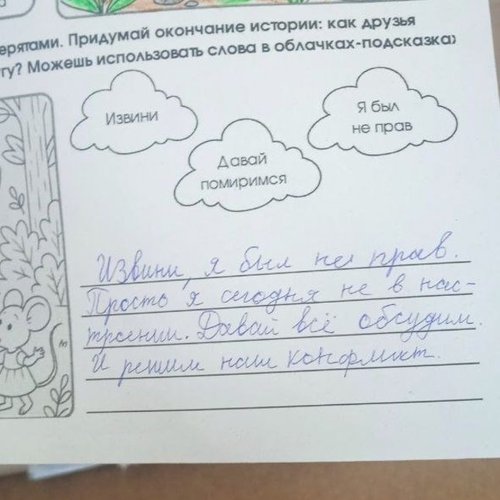 ерятами. Придумай окончание истории: как друзья
гу? Можешь использовать слова в облачках-подсказках
Извини
Я был
не прав
Давай
помиримся
Извини, я был не прав.
Просто я сегодня не в нас-
троении. Давай всё обсудим.
И решим наш конфликт.